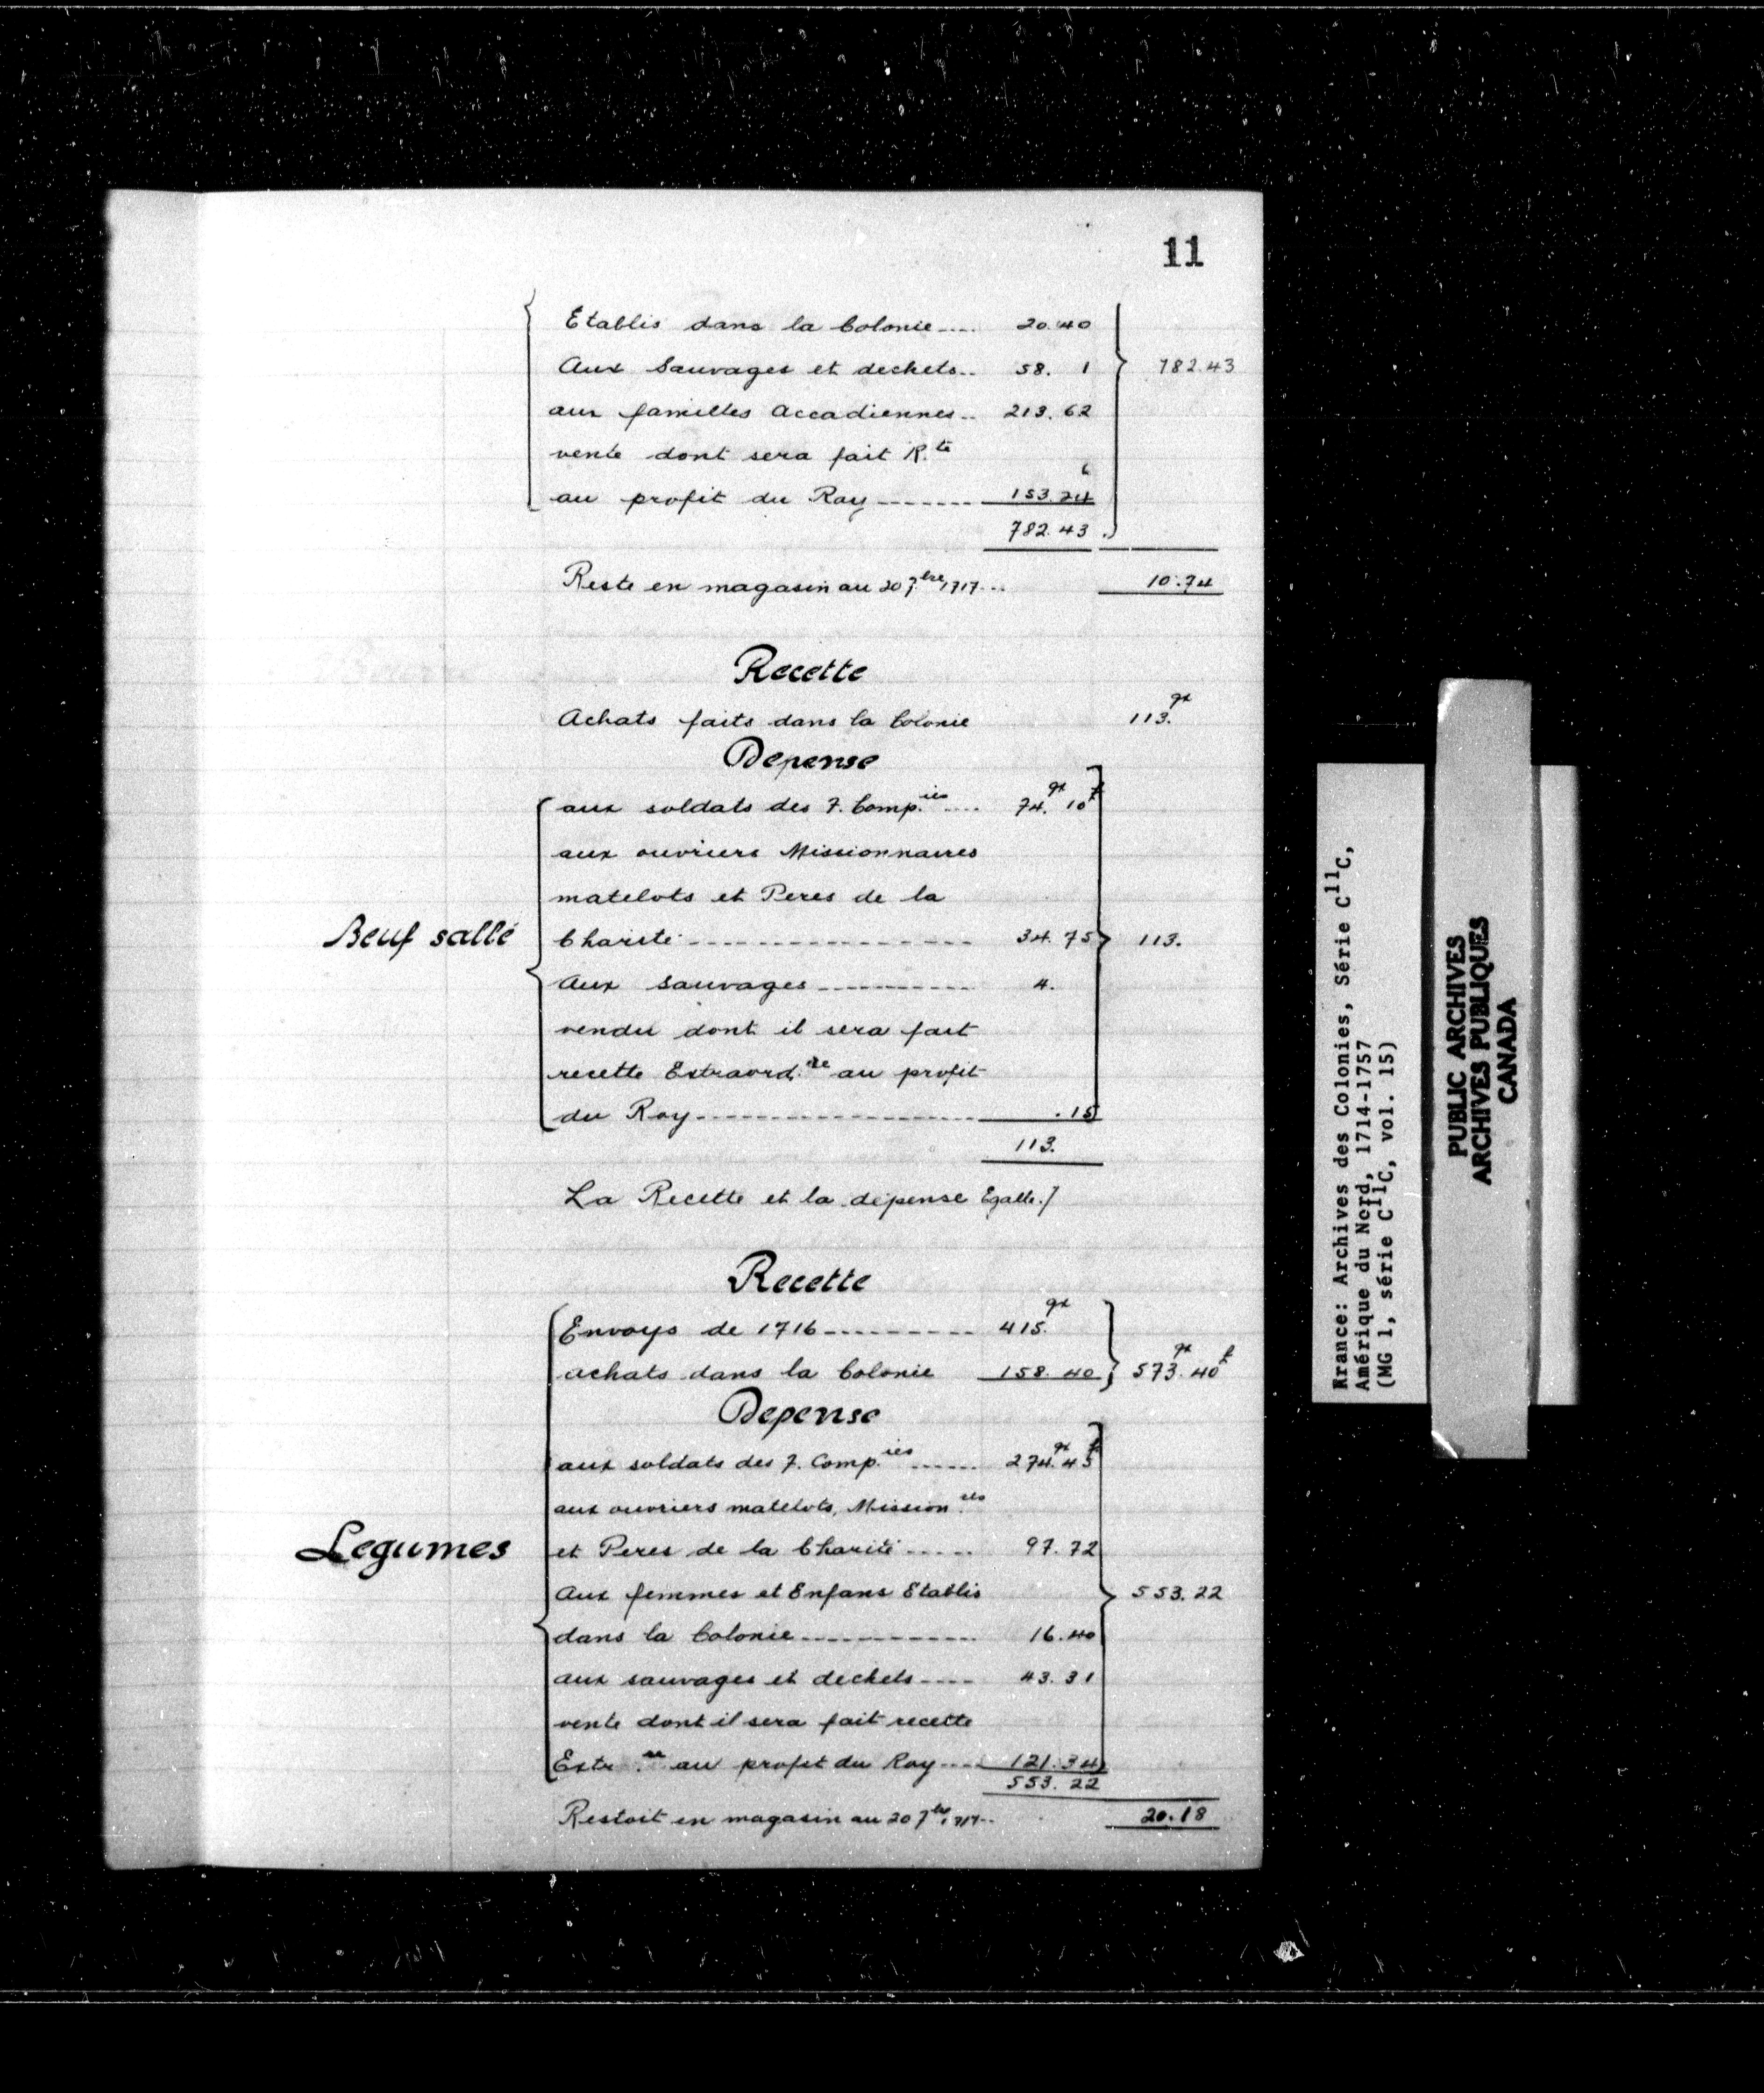 11
Etablis dans la Colonie.... 20.40
Aux Sauvages et dechets.. 58. 1 782.43
aux familles Accadiennes.. 213.62
vente dont sera fait R.te
6
au profit du Roy ------- 153.24
782.43
Reste en magasin au 20 7.bre 1717... 10.74
Recette
Achats faits dans la Colonie 113.qx
Depense
aux soldats des 7. Comp.ies .... 74.qx 10 #
aux ouvriers Missionnaires
matelots et Peres de la
Beuf sallé Charité ---------------- 34.75 113.
Aux Sauvages ---------- 4.
vendu dont il sera fait
recette Extraord.re au profit
du Roy ------------------ .15
113.
La Recette et la dépense Egalle./
Recette
Envoys de 1716 --------- 415.qx
achats dans la Colonie 158.40 573.qx 40 #
Depense
aux soldats des 7. Comp.ies ...... 274.qx 45 #
aux ouvriers matelots, Mission.res
Legumes et Peres de la Charité ..... 97.72
Aux femmes et Enfans Etablis 553.22
dans la Colonie ----------- 16.40
aux sauvages et dechets ---- 43.31
vente dont il sera fait recette
Extr.re au profit du Roy --- 121.34
553.22
Restoit en magasin au 20 7.bre 1717.. 20.18
Krance: Archives des Colonies, Série C11C,
Amérique du Nord, 1714-1757
(MG 1, série C11C, vol. 15)
PUBLIC ARCHIVES
ARCHIVES PUBLIQUES
CANADA